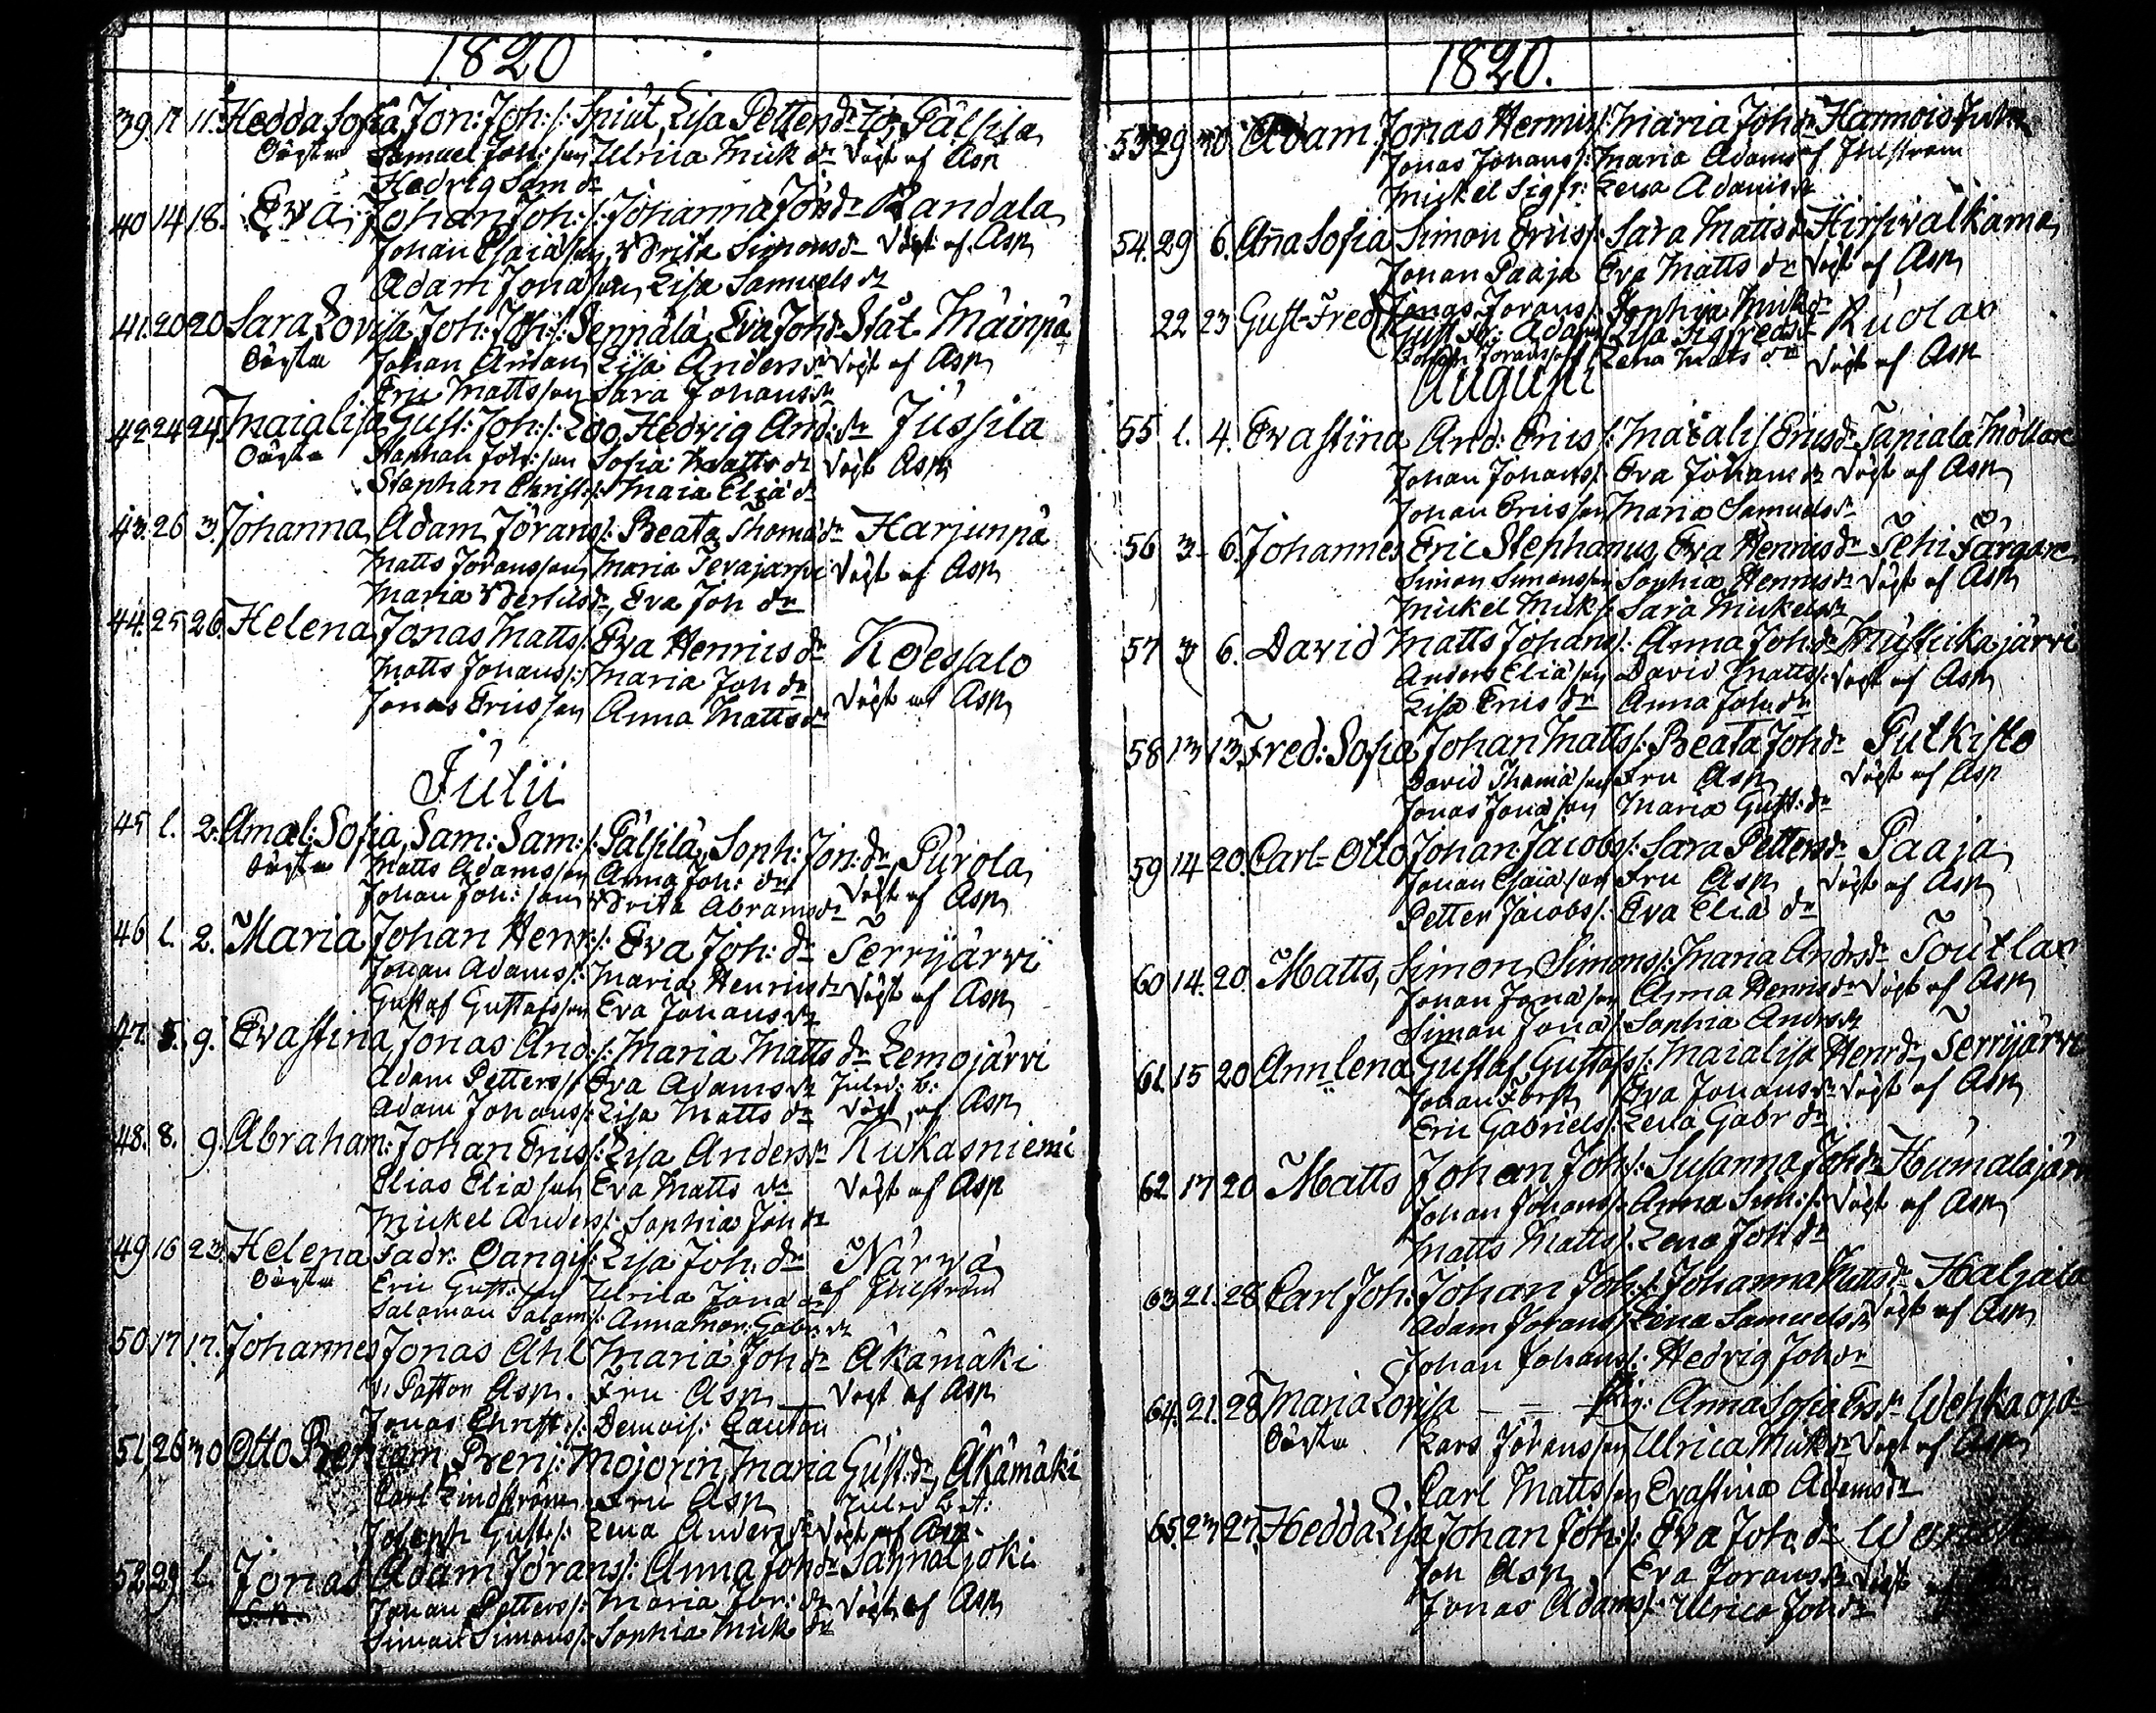 1820
39. 17 11. Hedda Sofia, Jon: Joh: s: Spiut, Lisa Petters dr Pälsila
Oägta Samuel Joh: son Ulrica Mick dr Döpt af Asp
Hedvig Sam dr
40 14 18. Eva Johan Joh: s: Johanna Jör dr Randala
Johan Esaiason, Brita Simons dr Döpt af Asp
Adam Jonason, Lisa Samuels dr
41. 20 20 Sara Lovisa Joh: Joh: s: Seppälä, Eva Joh dr Mäinpä
Oägta Johan Aman Lisa Anders dr Döpt af Asp
Eric Mattsson Sara Johans dr
42 24 24. Maialisa Gust: Joh: s: Loo, Hedvig And: dr Jussila
Oägta Stephan Joh: son Sofia Matts dr Döpt Asp
Stephan Christ: s: Maia Elia dr
43. 26 3. Johanna, Adam Jörans s: Beata Thoma dr Harjunpä
Matts Joransson, Maria Döpt af Asp
Maria Bertils dr, Eva Joh dr
44. 25 26. Helena, Jonas Matts s: Eva Henrics dr Koessalo
Matts Johans s: Maria Joh dr Döpt af Asp
Jonas Ericsson Anna Matts dr
Julii
45 1. 2. Amal: Sofia, Sam: Sam: s: Pälsilä, Soph: Jon: dr, Purola
Oägta Matts Adamsson Anna Joh: dr Döpt af Asp
Johan Joh: son Brita Abrams dr
46 1. 2. Maria Johan Henr: s: Eva Joh: dr Terrijärvi
Johan Adams s: Maria Henrics dr Döpt af Asp
Gustaf Gustafsson Eva Johans dr
47. 5. 9. Evastina, Jonas And: s: Maria Matts dr Lemojärvi
Adam Petters s: Eva Adams dr
Adam Johans s: Lisa Matts dr Döpt af Asp
48. 8. 9. Abraham: Johan Erics s: Lisa Anders dr Kukasniemi
Elias Eliason Eva Matts dr Döpt af Asp
Mickel Anders s: Sophia Joh dr
49 16 23. Helena Fadr: Dangis: Lisa Joh: dr Närwä
Oägta Eric Gust: son Ulrica Jona dr af Juhlström
Salomon Salom s: Anna Mar: Gabr: dr
50 17 17. Johannes Jonas Ahl Maria Joh dr Äkämäki
V: Pastor Asp. Fru Asp Döpt af Asp
Jonas Christ: s: Demois:
51. 26 30 Otto Benjam, Benj: Mojorin, Maria Gust: dr, Äkämäki
Carl Lindström Fru Asp
Joseph Gust: s: Lena Anders dr Döpt af Asp
52 29 1. Jonas Adam Jörans s: Anna Joh dr Sahnaljoki
Johan Petters s: Maria Jör: dr Döpt af Asp
Simon Simons s: Sophia Mick dr
1820.
53 29 30 Adam. Jonas Henrics: Maria Joh dr Hannois
Jonas Johans s: Maria Adams dr af Juhlström
Mickel Sigfr: Lena Adams dr
54. 29 6. Anna Sofia Simon Erics s: Sara Matts dr Hirsivalkama
Johan Paaja Eva Matts dr Döpt af Asp
22 23 Gust-Fred Jonas Jorans s: Sophia Mick dr Ruolax
Gust: Fr: Adams Lisa Sigfreds dr
Joransson Lena Matts dr Döpt af Asp
Augusti
55 1. 4. Evastina And: Erics s: Maialis Erics dr Taniala Möllare
Johan Johans s: Eva Johans dr Döpt af Asp
Johan Ericsson Maria Samuels dr
56 3 6. Johannes Eric Stephanus, Eva Henrics dr Tehi Färgare
Simon Simonsson Sophia Henrics dr Döpt af Asp
Mickel Mick s: Sara Mickels dr
57 3 6. David Matts Johans s: Anna Joh: dr Mustickajärvi
Anders Eliason David Matts s: Döpt af Asp
Lisa Erics dr Anna Joh: dr
58 13 13. Fred: Sofia, Johan Matts s: Beata Joh dr Putkisto
David Thomason Fru Asp Döpt af Asp
Jonas Jonason Maria Gust: dr
59 14 20. Carl-Otto Johan Jacobs s: Sara Petters dr Paaja
Johan Esaiason Fru Asp, Döpt af Asp
Petter Jacobs s: Eva Elia dr
60 14. 20. Matts, Simon, Simons s: Maria Anders dr Toutlax
Johan Jonason Anna Henrics dr Döpt af Asp
Simon Jona s: Sophia Anders dr
61. 15 20 Annlena Gustaf Gustafs s: Maialisa Henr dr, Terrijärvi
Johan Forss Eva Johans dr Döpt af Asp
Eric Gabriels s: Lena Gabr dr
62 17 20 Matts Johan Joh s: Susanna Joh dr Humalajärvi
Johan Johans s: Anna Sim: s: Döpt af Asp
Matts Matts s: Lena Joh dr
63 21. 28 Carl Joh: Johan Joh: s: Johanna Matts dr Haljala
Adam Johans s: Lena Samuels dr Döpt af Asp
Johan Johans s: Hedvig Joh dr
64. 21. 28 Maria Lovisa — — Pig: Anna Sofia Ers dr Wehkaoja
Oägta Lars Joransson, Ulrica Mick dr Döpt af Asp
Carl Mattsson Evastina Adams dr
65. 23 27. Hedda Lisa Johan Joh: s: Eva Joh: dr
Joh Asp Eva Jorans dr Döpt
Jonas Adams s: Ulrica Joh dr